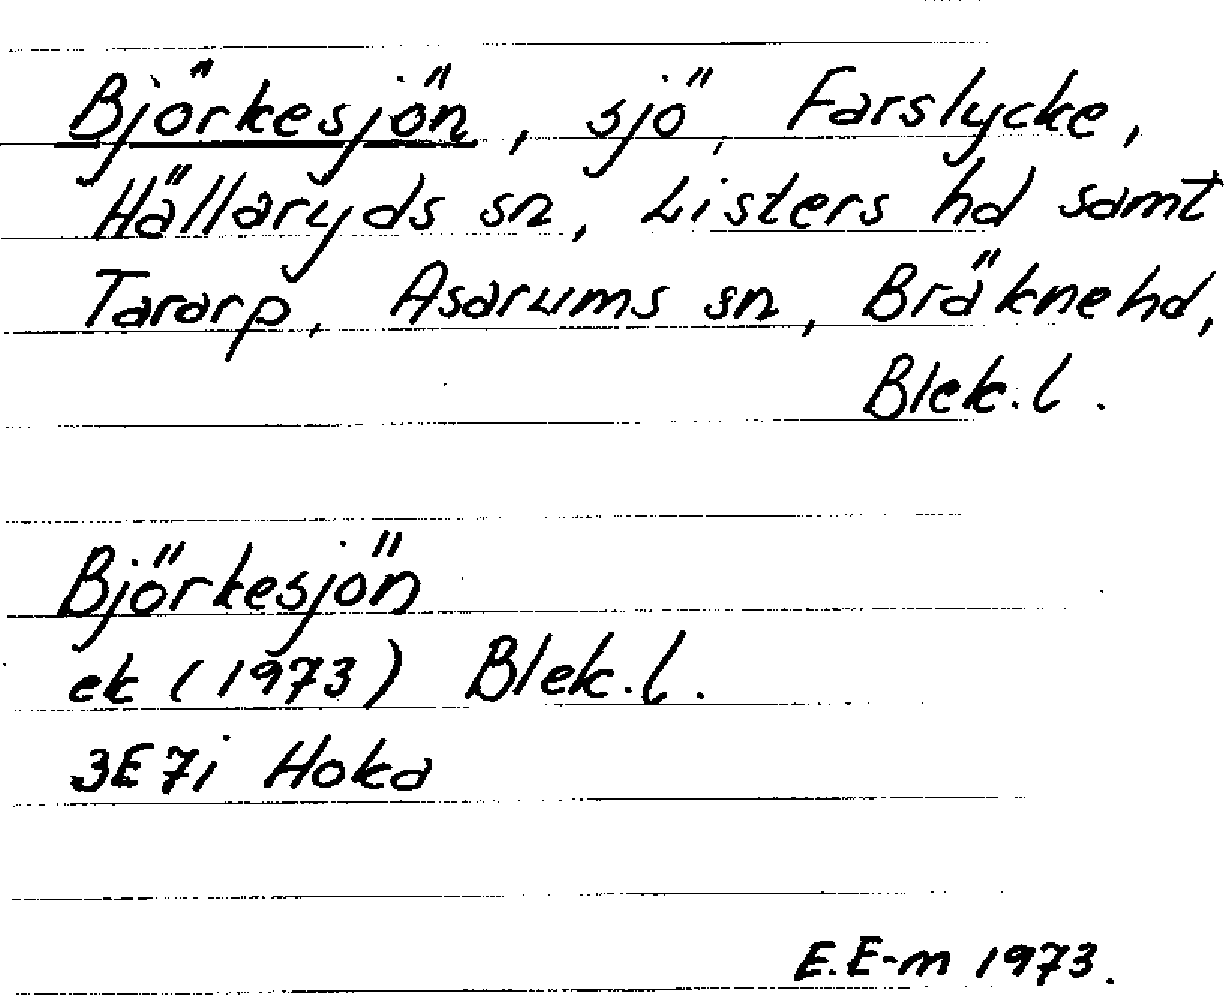 Björkesjön, sjö, Farslycke,
Hällaryds sn, Listers hd samt
Tararp, Asarums sn, Bräkne hd,
Blek.l.
Björkesjön
ek (1973) Blek.l.
3E7i Hoka
E.E-m 1973.